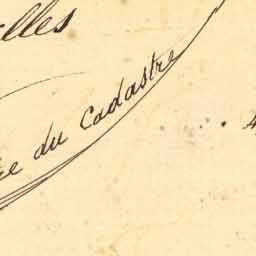 elles
re du Cadastre
4